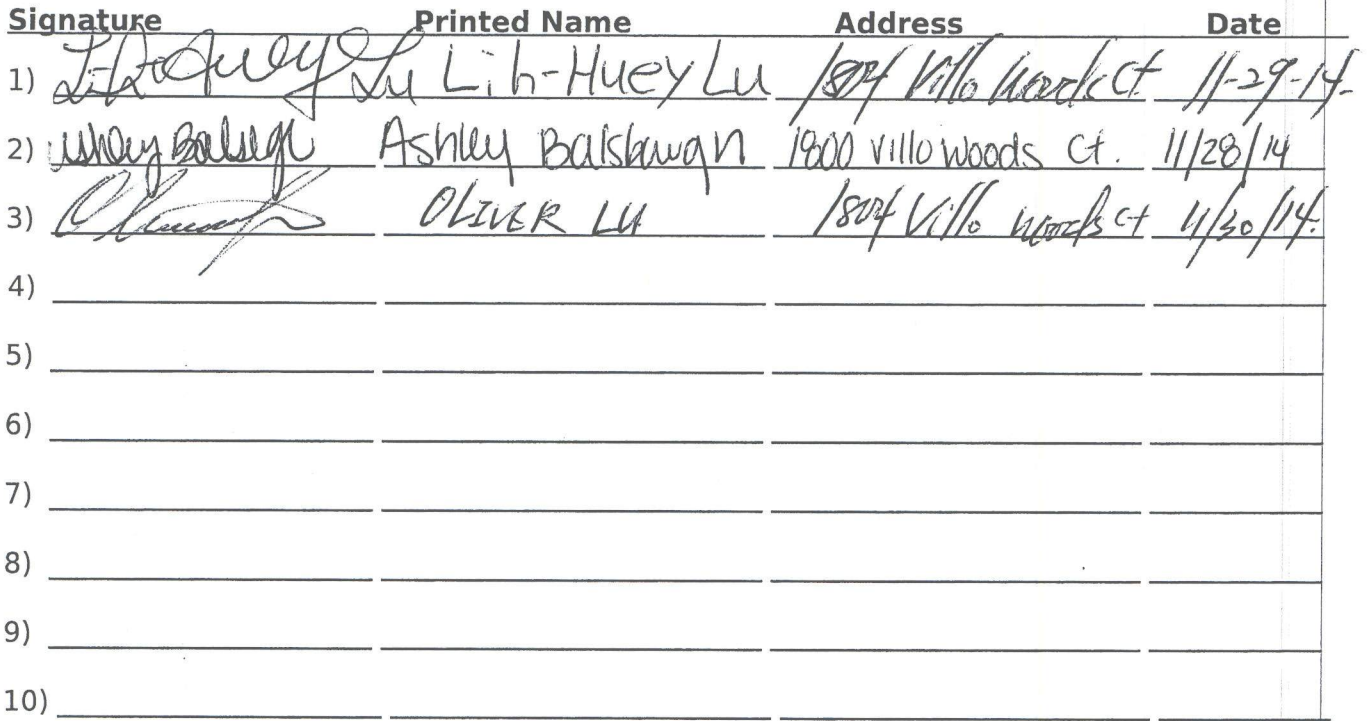 Signature Printed Name Address Date
1) Lih-Huey Lu Lih-Huey Lu 1804 Villo Woods Ct 11-29-14.
2) Ashley Balsbaugh 1800 Villo Woods Ct. 11/28/14
3) OLIVER LU 1804 Villo Woods Ct 11/30/14.
4)
5)
6)
7)
8)
9)
10)